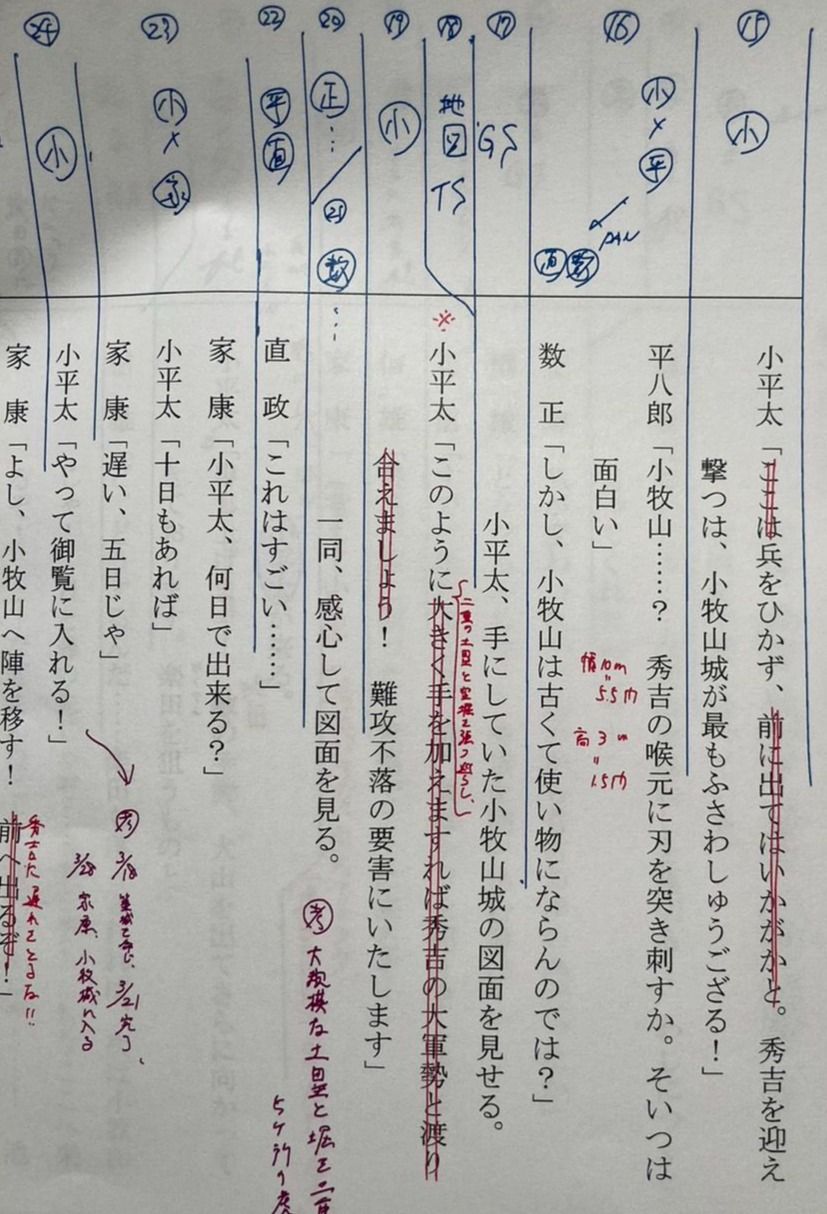 ⑮
小
小平太「ここは兵をひかず、前に出てはいかがかと。秀吉を迎え
撃つは、小牧山城が最もふさわしゅうござる！」
⑯
小×平
PAN
直 数
平八郎「小牧山……？　秀吉の喉元に刃を突き刺すか。そいつは
面白い」
高3m
1.5m
数　正「しかし、小牧山は古くて使い物にならんのでは？」
⑰
GS
小平太、手にしていた小牧山城の図面を見せる。
⑱
地図
TS
※
小平太「このように大きく手を加えますれば秀吉の大軍勢と渡り
合えましょう！　難攻不落の要害にいたします」
二重の土塁と空堀を張り巡らし、
⑲
小
⑳
正…
㉑
数…
一同、感心して図面を見る。
考 大規模な土塁と堀を二重
5ケ所の虎
㉒
平 直
直　政「これはすごい……」
家　康「小平太、何日で出来る？」
㉓
小×家
小平太「十日もあれば」
家　康「遅い、五日じゃ」
考 3/18
3/21完了、
3/28 家康、小牧城に入る
㉔
小
小平太「やって御覧に入れる！」
家　康「よし、小牧山へ陣を移す！　前へ出るぞ！」
秀吉に遅れをとるな!!